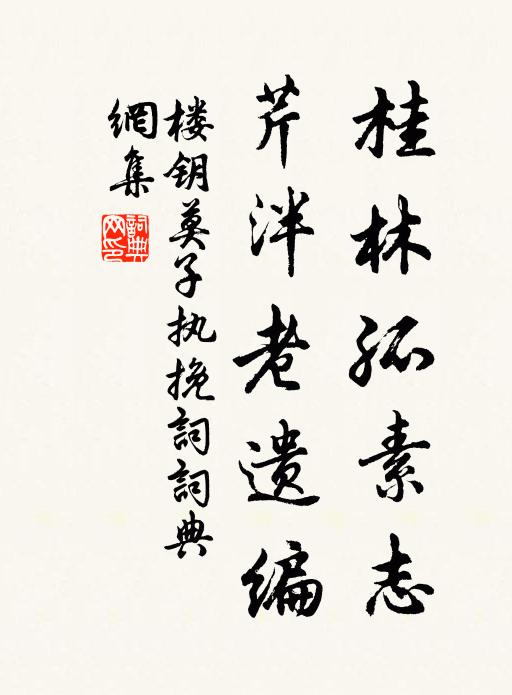 桂林孤素志
芹泮老遗编
楼钥莫子执挽詞詞典
網集
詞典
网印